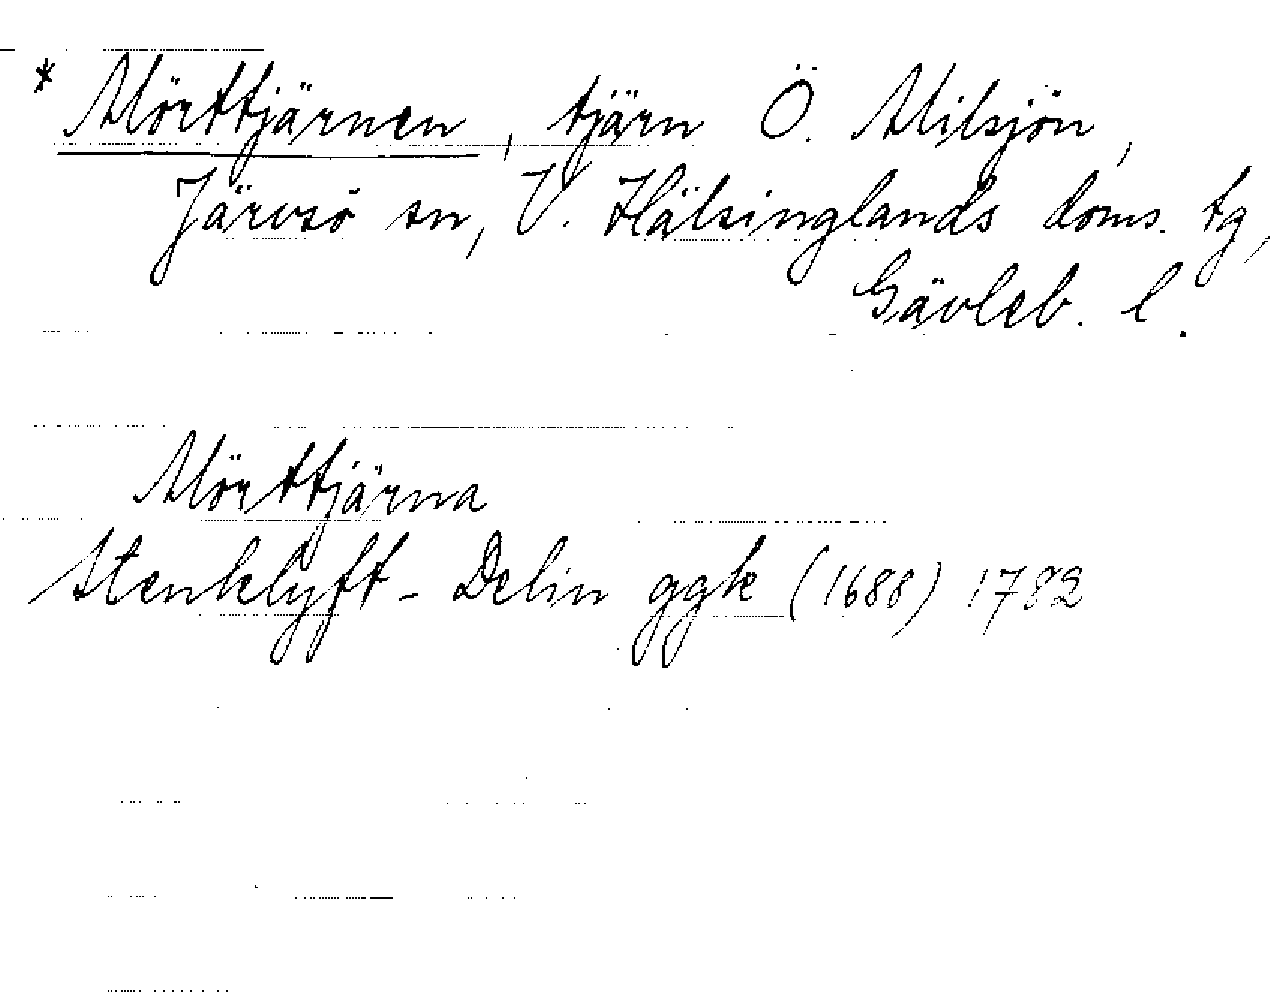 * Mörttjärnen, tjärn Ö. Milsjön,
Järvsö sn, V. Hälsinglands doms. tg,
Gävleb. l.
Mörttjärna
Stenklyft - Delin ggk (1688) 1782